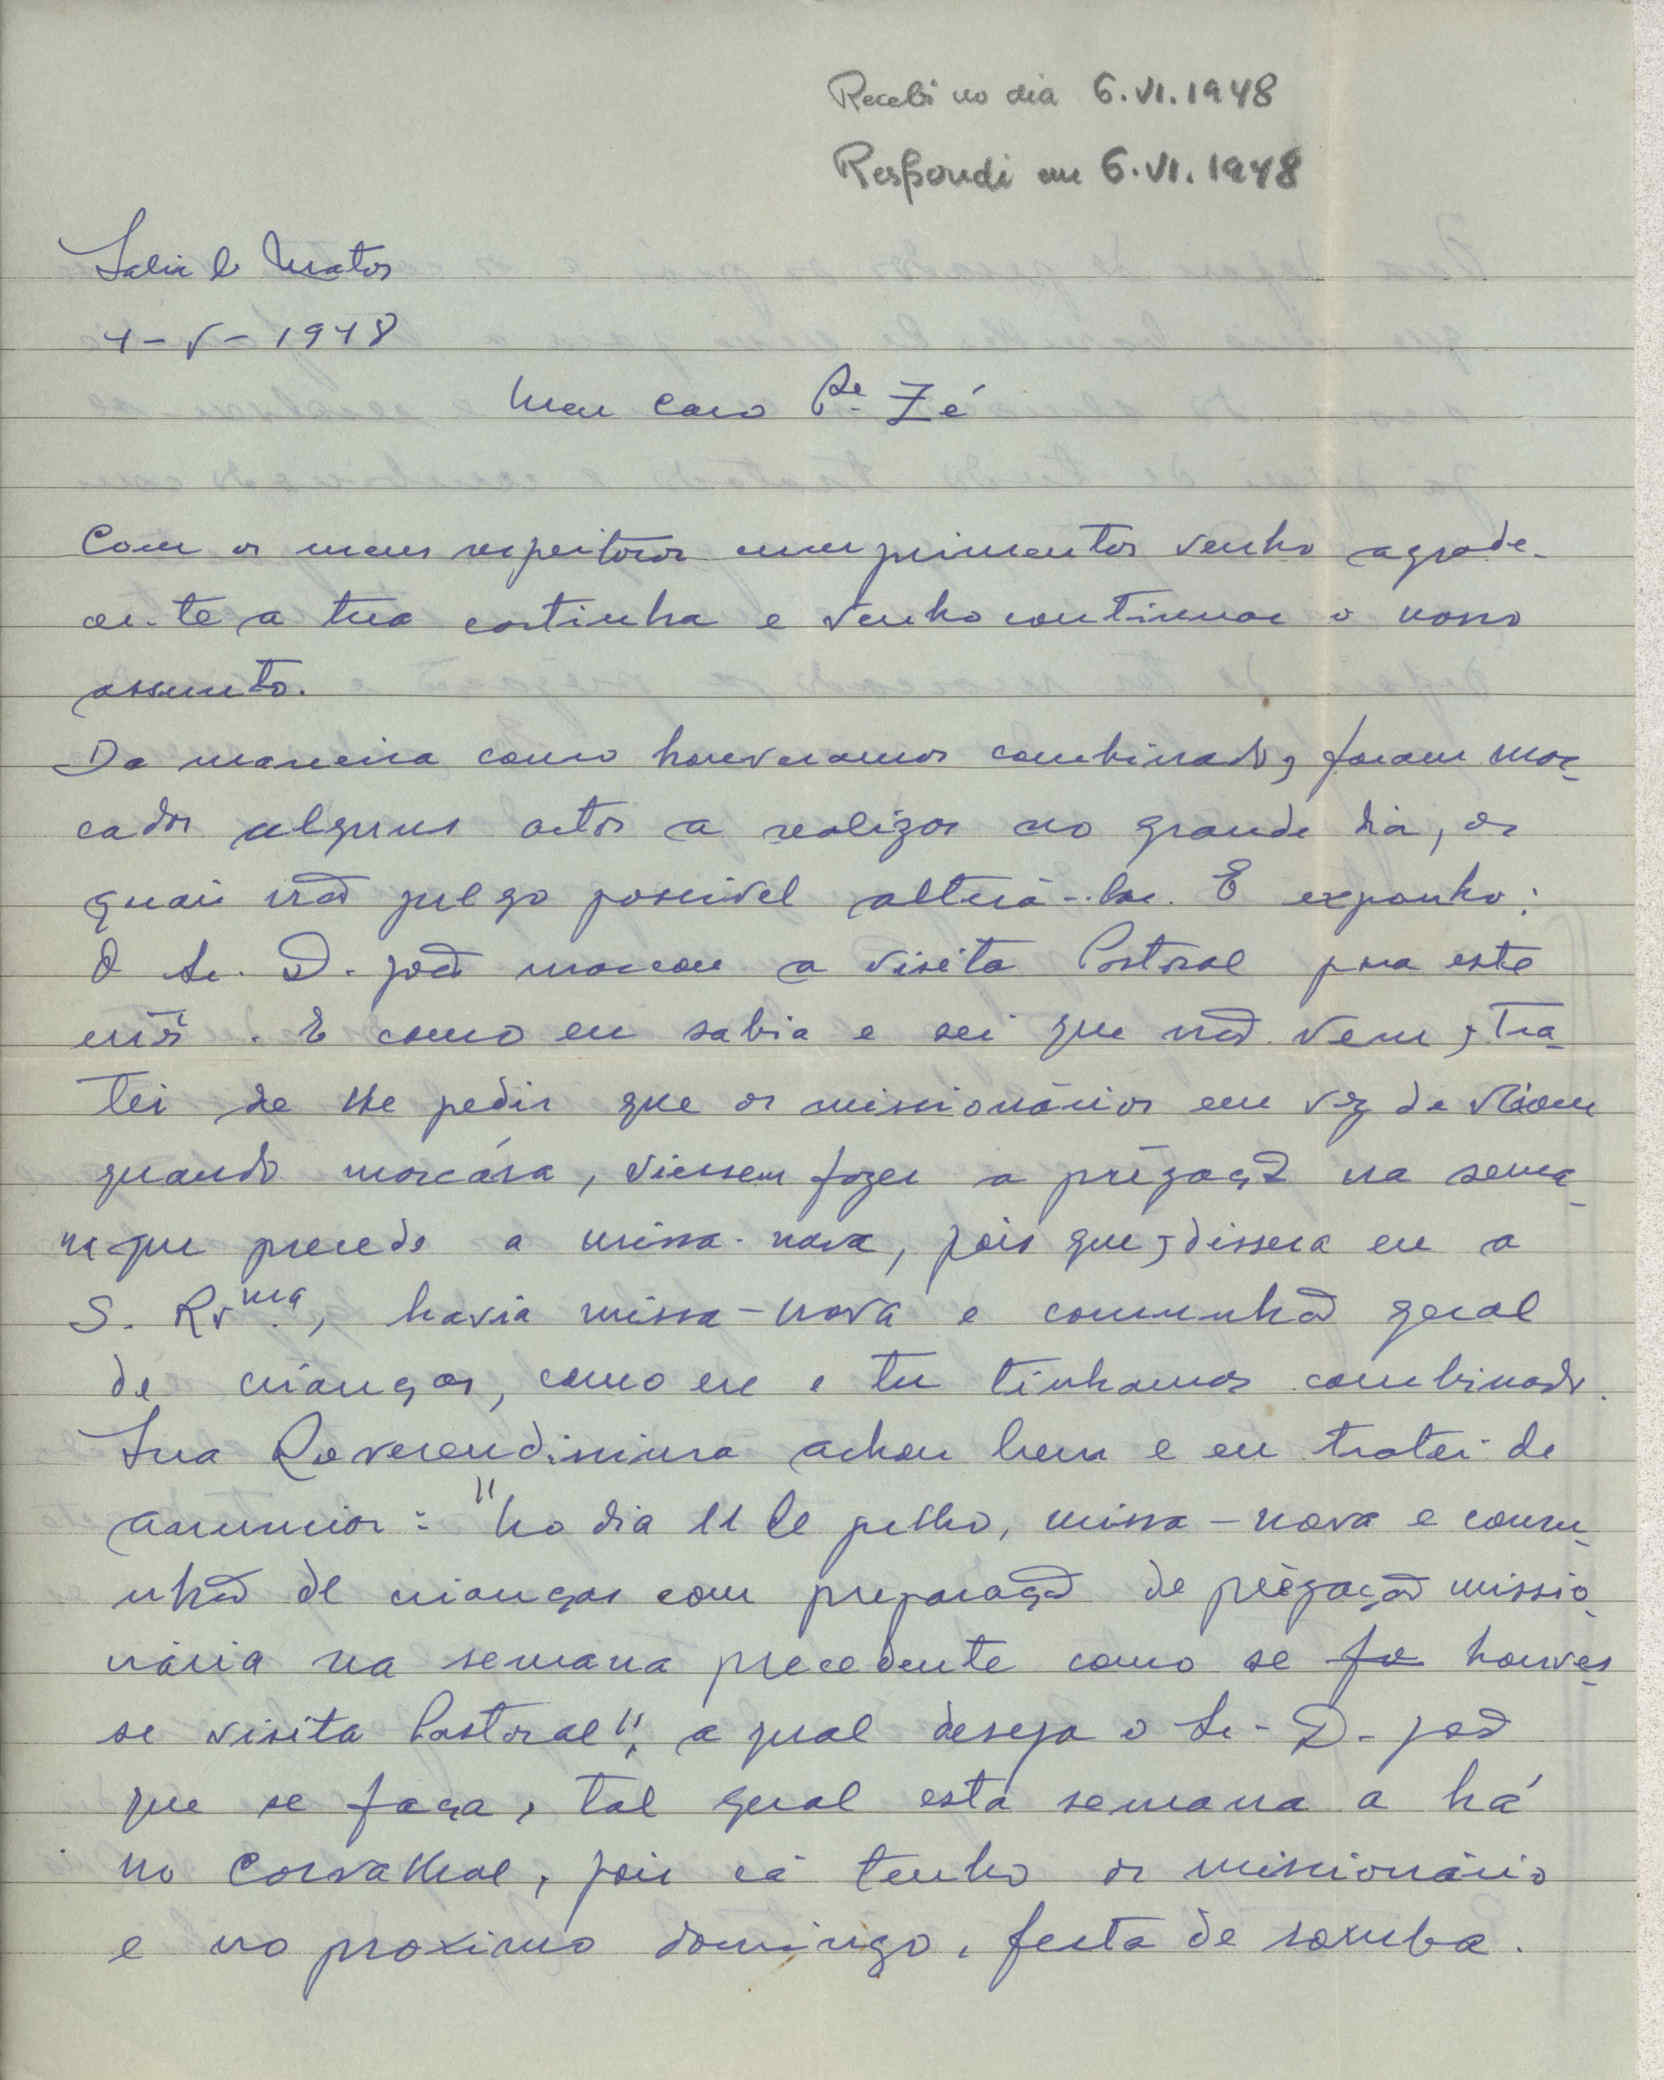 Recebi no dia 6.VI.1948
Respondi em 6.VI.1948
Matos
4-V-1948
Meu caro Pe. Zé
Com os meus respeitosos cumprimentos venho agrade-
cer-te a tua cartinha e venho continuar o nosso
assunto.
Da maneira como houveramos combinado, foram mar-
cados alguns actos a realizar no grande dia, os
quais não julgo possivel alterá-los. E exponho:
O Sr. D. João marcou a visita Pastoral para este
mês. E como eu sabia e sei que não vem, tra-
tei de lhe pedir que os missionários em vez de virem
quando marcára, viessem fazer a prègação na sema-
na que precede a missa-nova, pois que, dissera eu a
S. Rvma., havia missa-nova e comunhão geral
de crianças, como eu e tu tinhamos combinado.
Sua Reverendissima achou bem e eu tratei de
anunciar: "No dia 11 de julho, missa-nova e comu-
nhão de crianças com preparação de prègação missio-
nária na semana precedente como se fo houves-
se visita Pastoral", a qual deseja o Sr. D. João
que se faça, tal qual esta semana a há
no Carvalhal, pois cá tenho os missionário
e no proximo domingo, festa de